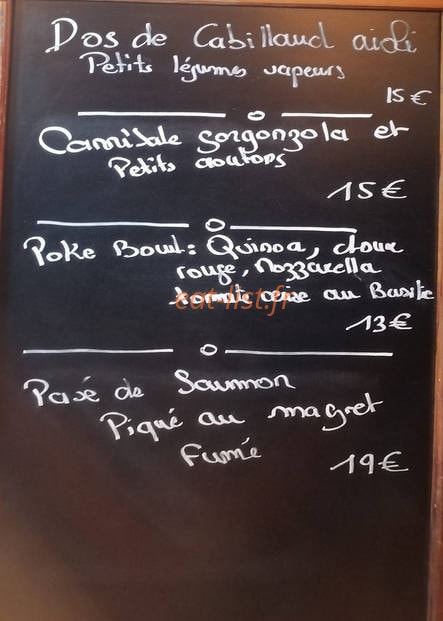 Dos de Cabillaud aioli
Petits légumes vapeurs
15€
Camistale gorgonzola et
Petits croutons
15€
Poke Bowl: Quinoa, choux
rouge, Mozzarella
tomate cerise au Basilic
eat-list.fr
13€
Pavé de Saumon
Piqué au magret
Fumé
19€